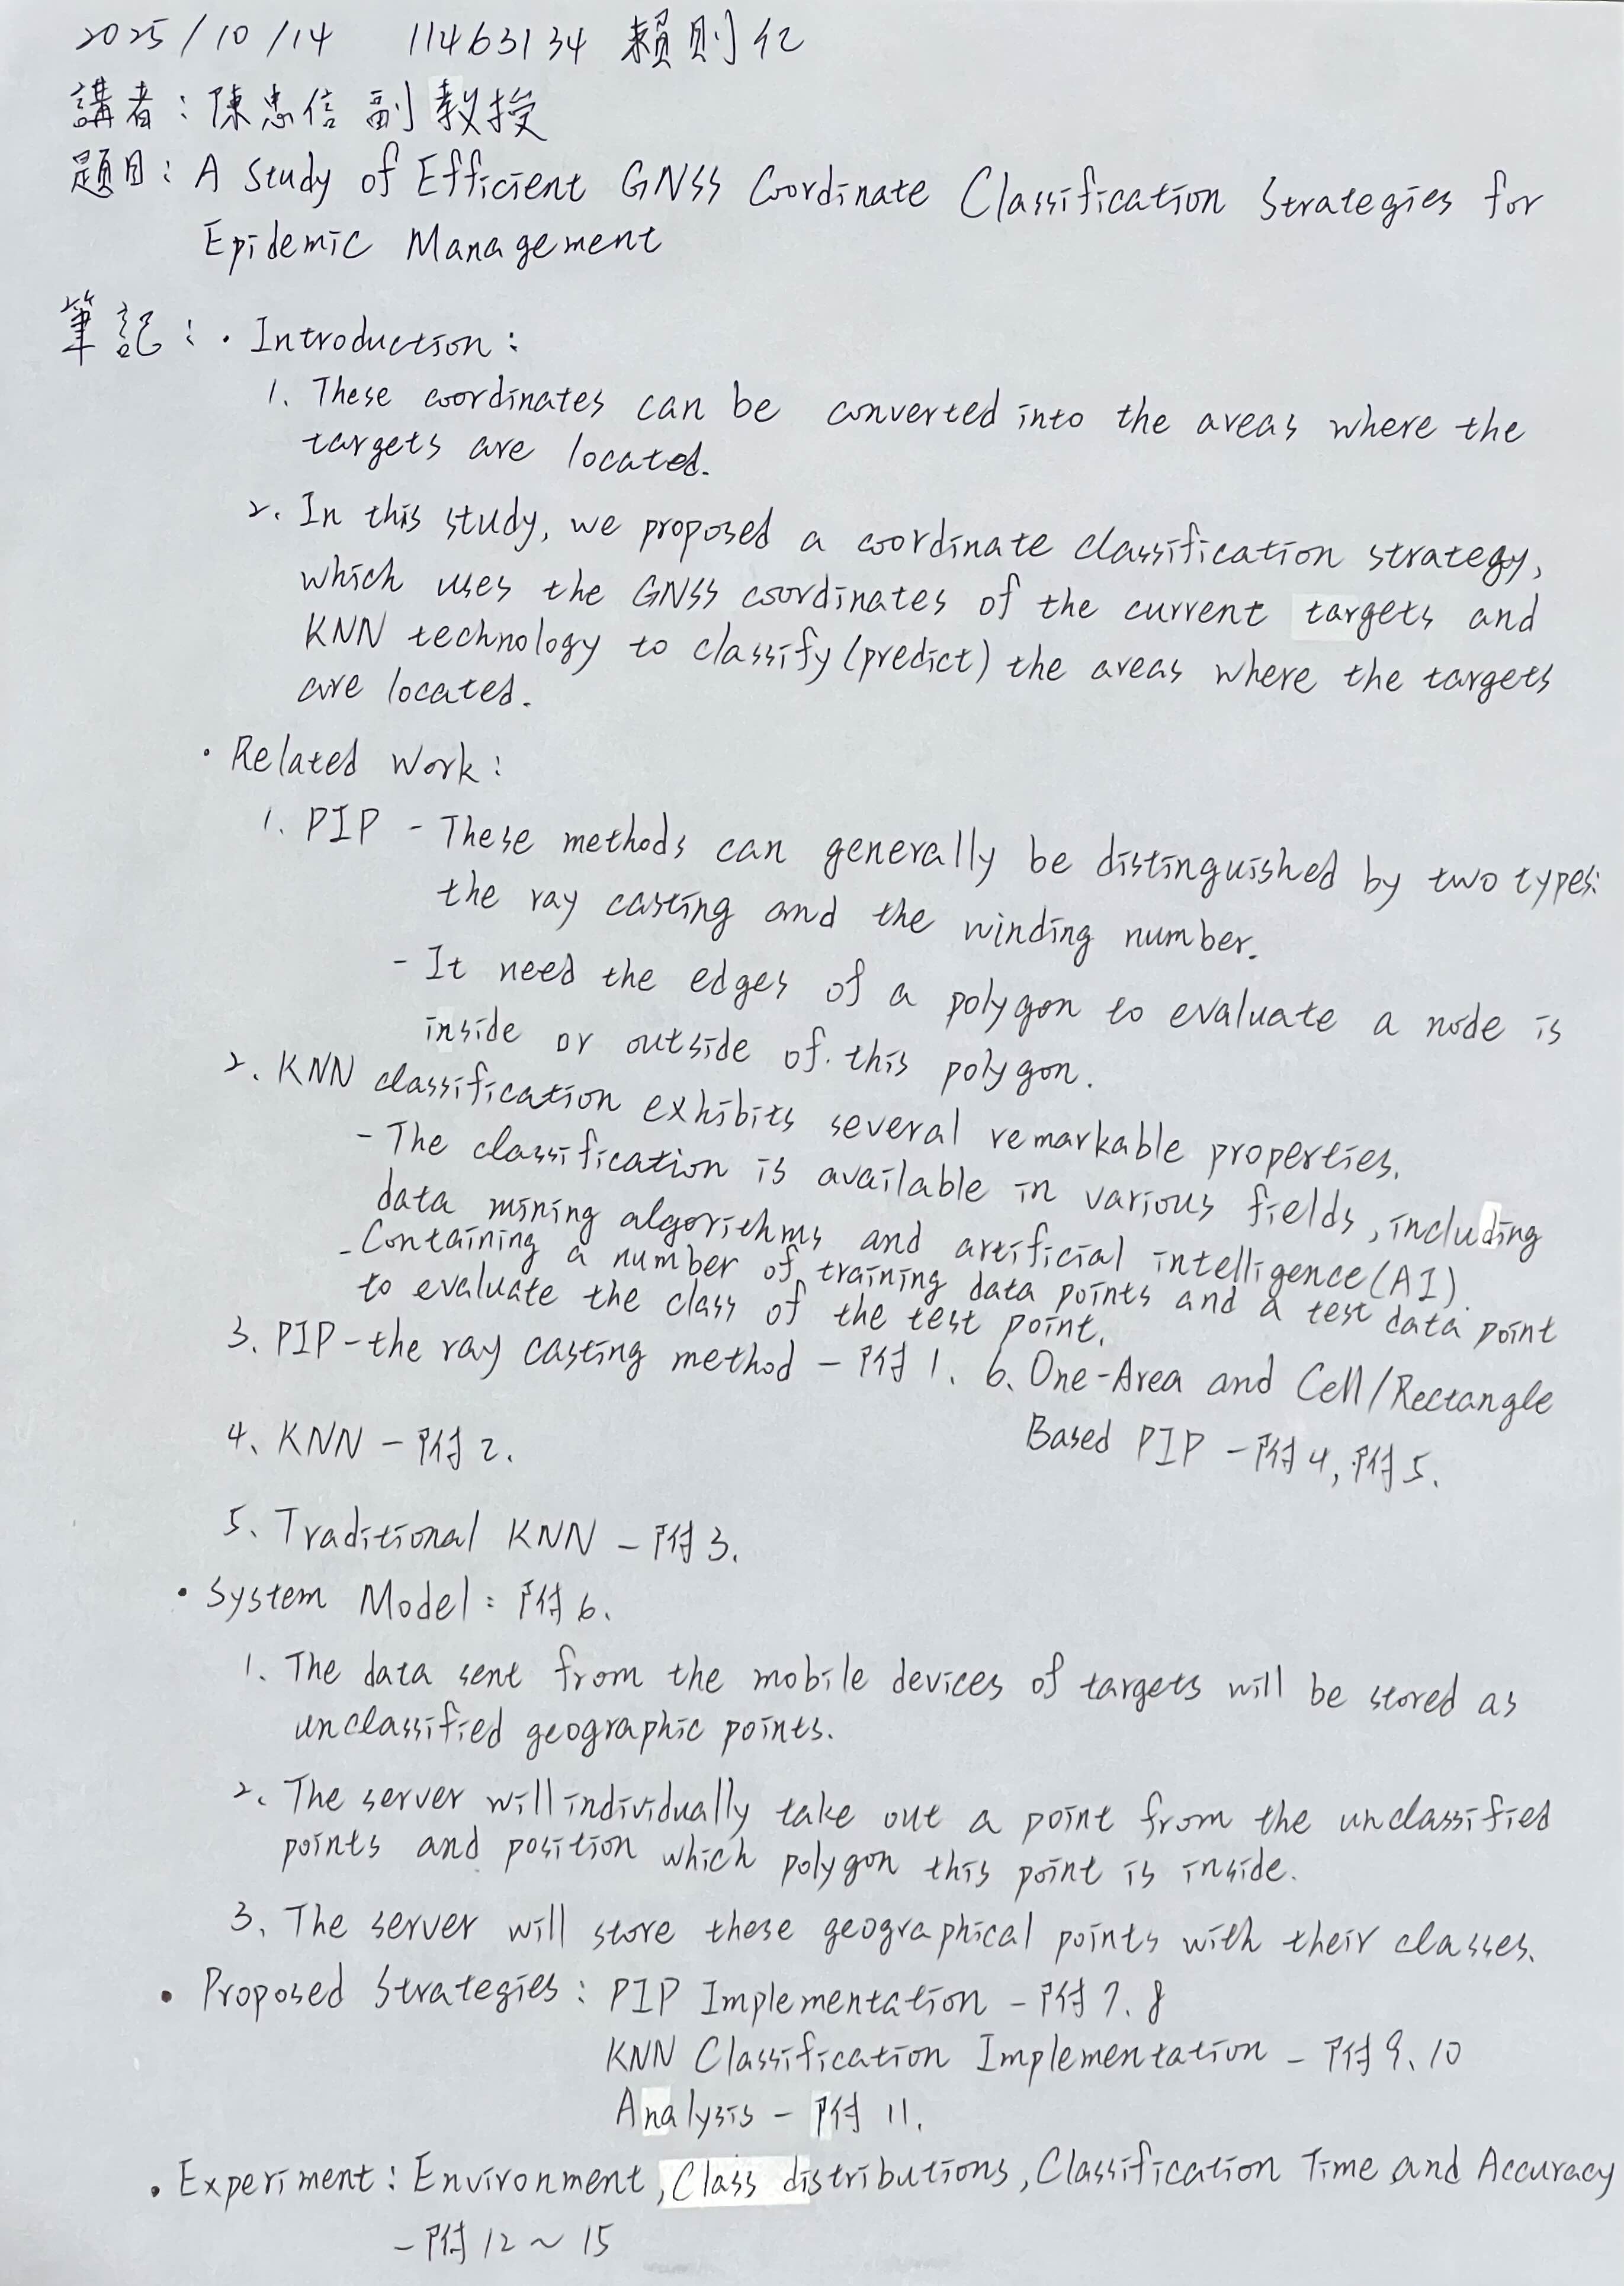 2025/10/14 11463134 賴則仁
講者：陳忠信 副教授
題目：A Study of Efficient GNSS Coordinate Classification Strategies for
Epidemic Management
筆記：· Introduction:
1. These coordinates can be converted into the areas where the
targets are located.
2. In this study, we proposed a coordinate classification strategy,
which uses the GNSS coordinates of the current targets and
KNN technology to classify (predict) the areas where the targets
are located.
· Related Work:
1. PIP - These methods can generally be distinguished by two types:
the ray casting and the winding number.
- It need the edges of a polygon to evaluate a node is
inside or outside of this polygon.
2. KNN classification exhibits several remarkable properties.
- The classification is available in various fields, including
data mining algorithms and artificial intelligence (AI).
- Containing a number of training data points and a test data point
to evaluate the class of the test point.
3. PIP - the ray casting method - 附1.
4. KNN - 附2.
5. Traditional KNN - 附3.
6. One-Area and Cell/Rectangle
Based PIP - 附4, 附5.
· System Model: 附6.
1. The data sent from the mobile devices of targets will be stored as
unclassified geographic points.
2. The server will individually take out a point from the unclassified
points and position which polygon this point is inside.
3. The server will store these geographical points with their classes.
· Proposed Strategies: PIP Implementation - 附7.8
KNN Classification Implementation - 附9、10
Analysis - 附11.
· Experiment: Environment, Class distributions, Classification Time and Accuracy
- 附12~15